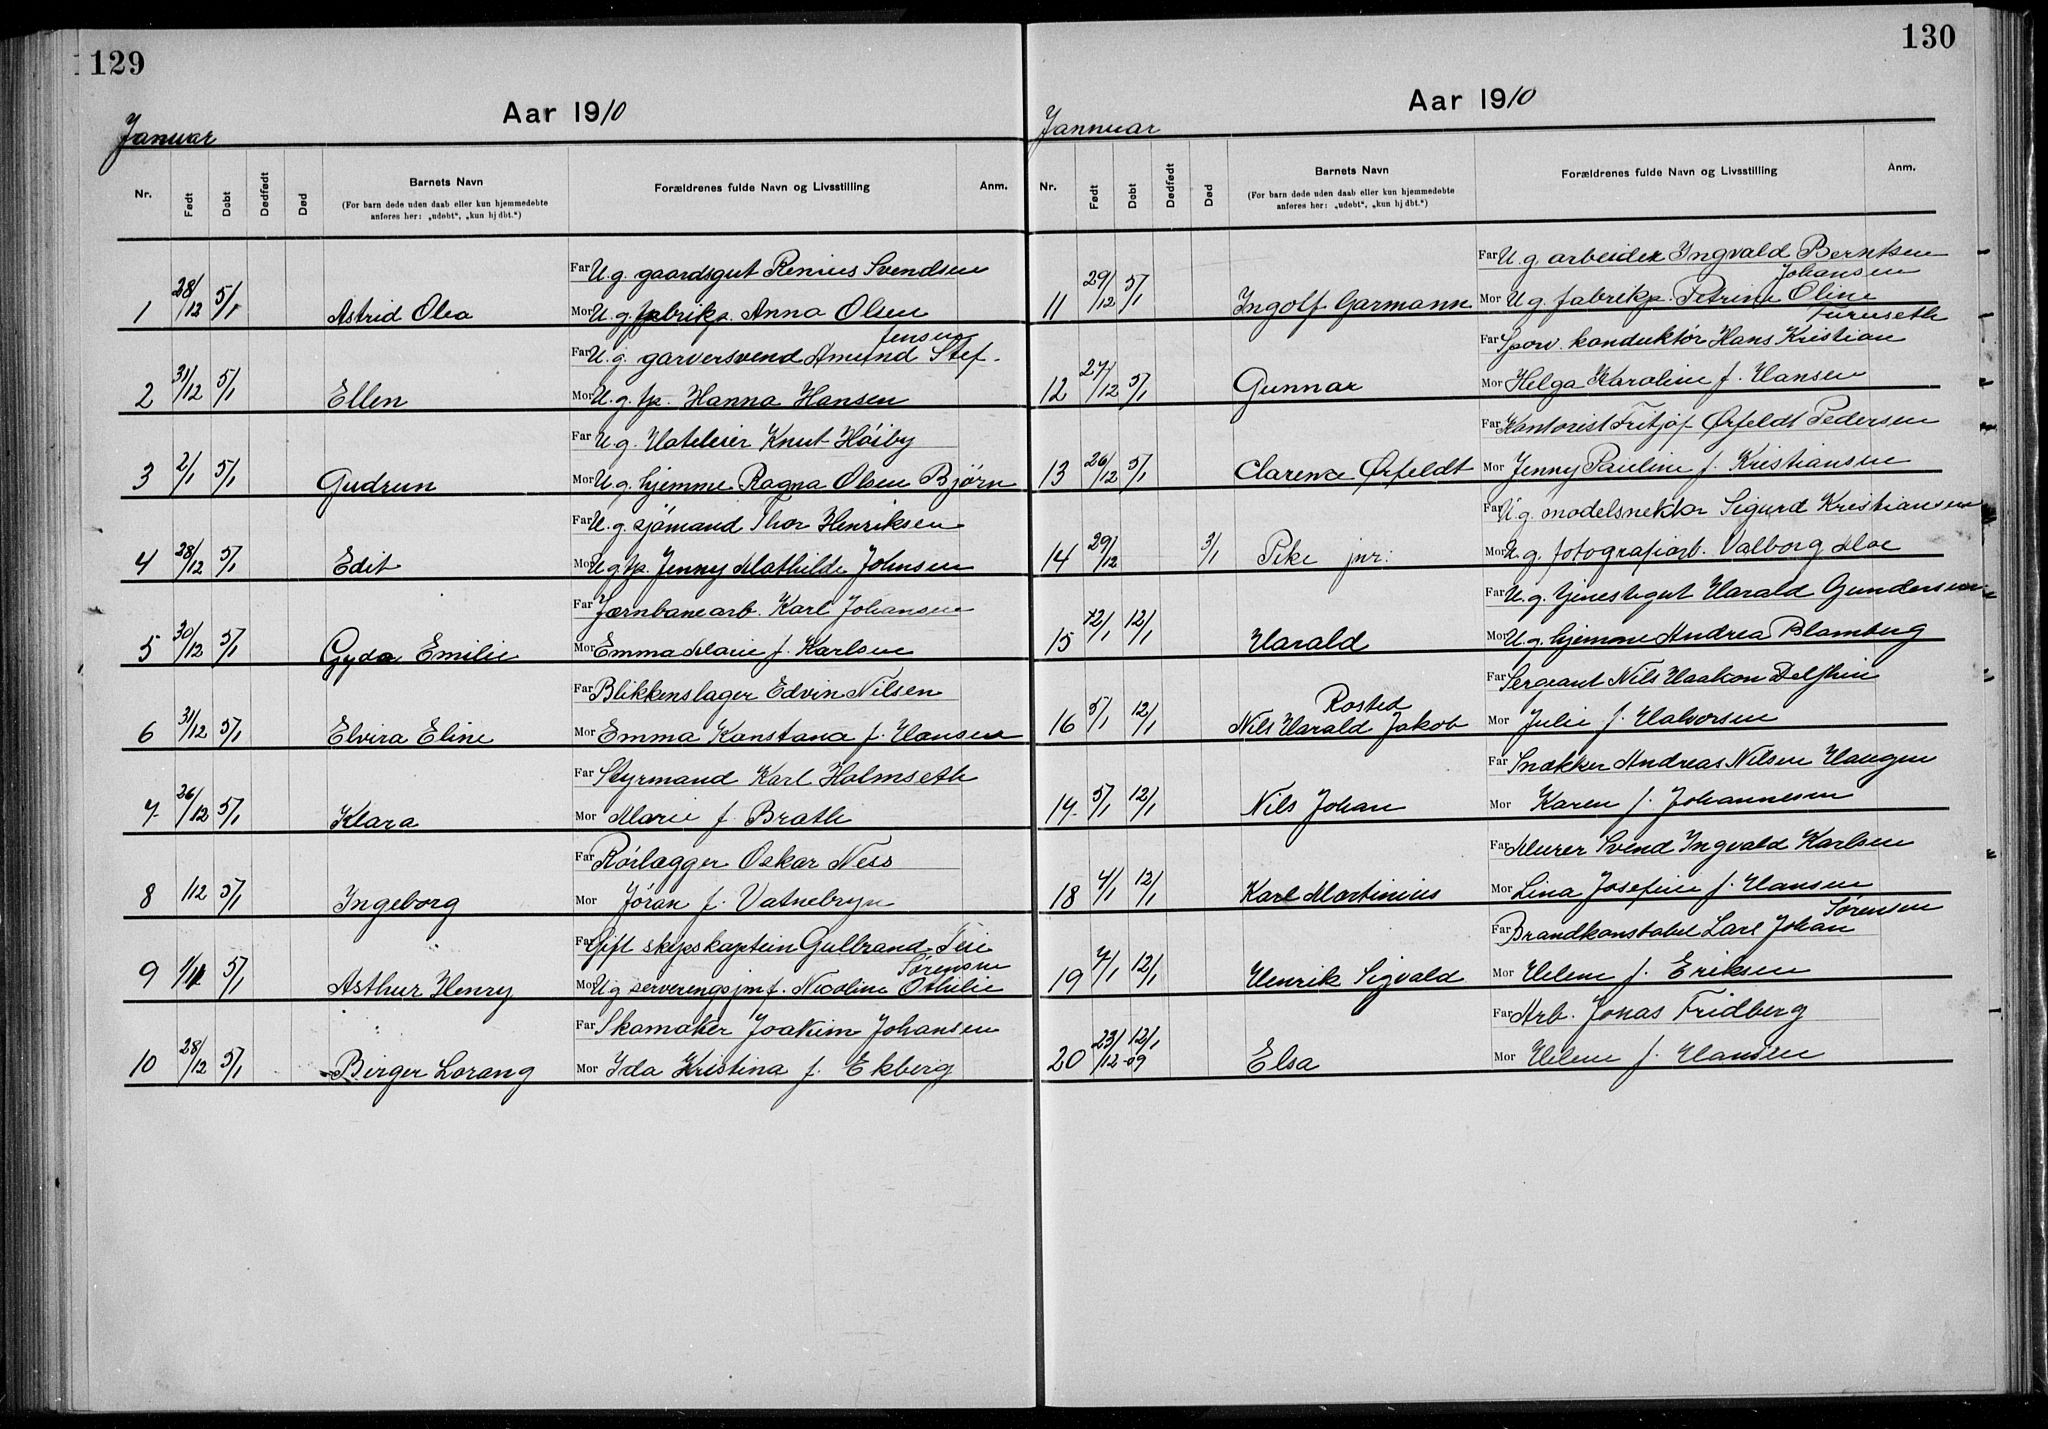 129
Aar 1910
Januar
Nr. Født Døbt Dødfødt Død Barnets Navn Forældrenes fulde Navn og Livsstilling Anm.
(For barn døde uden daab eller kun hjemmedøbte
anføres her: „udøbt“, „kun hj dbt.“)
Far U. g. gaardsgut Renius Svendsen
1 28/12 5/1 Astrid Olea Mor U. g. fabrikp. Anna Olsen
Jensen
Far U. g. garversvend Amund Stef-
2 31/12 5/1 Ellen Mor U. g. fp. Hanna Hansen
Far U. g. Hoteleier Knut Høiby
3 2/1 5/1 Gudrun Mor U. g. hjemme Ragna Olsen Bjørn
Far U. g. sjømand Thor Henriksen
4 28/12 5/1 Edit Mor U g. fp. Jenny Mathilde Johnsen
Far Jærnbanearb. Karl Johansen
5 30/12 5/1 Gyda Emilie Mor Emma Marie f. Karlsen
Far Blikkenslager Edvin Nilsen
6 31/12 5/1 Elvira Eline Mor Emma Konstana f. Hansen
Far Styrmand Karl Holmseth
7 26/12 5/1 Klara Mor Marie f. Brath
Far Rørlægger Oskar Ness
8 1/12 5/1 Ingeborg Mor Jøran f. Vatnebryn
Far Gift skipskaptein Gulbrand Teie
Sørensen
9 1/11 5/1 Arthur Henry Mor U g serveringsjmf. Nicoline Othilie
Far Skomaker Joakim Johansen
10 28/12 5/1 Birger Lorang Mor Ida Kristina f. Ekberg
130
Aar 1910
Jannuar
Nr. Født Døbt Dødfødt Død Barnets Navn Forældrenes fulde Navn og Livsstilling Anm.
(For barn døde uden daab eller kun hjemmedøbte
anføres her: „udøbt“, „kun hj dbt.“)
Far U. g. arbeider Ingvald Berntsen
Johansen
11 29/12 5/1 Ingolf Garmann Mor U g. fabrikp. Petrine Oline
Furuseth
Far Sporv. konduktør Hans Kristian
12 27/12 5/1 Gunnar Mor Helga Karoline f. Hansen
Far Kontorist Fritjof Ørfeldt Pedersen
13 26/12 5/1 Clarence Ørfeldt Mor Jenny Pauline f. Kristiansen
Far U. g. modelsnekker Sigurd Kristiansen
14 29/12 3/1 Pike jnr: Mor U. g. fotografiarb. Valborg Moe
Far U. g. tjenestegut Harald Gundersen
15 12/1 12/1 Harald Mor U. g. hjemme Andrea Blomberg
Far Sergeant Nils Haakon Delphin
Rosted
16 5/1 12/1 Nils Harald Jakob Mor Julie f. Halvorsen
Far Snækker Andreas Nilsen Haugen
17 5/1 12/1 Nils Johan Mor Karen f. Johannesen
Far Murer Svend Ingvald Karlsen
18 4/1 12/1 Karl Martinius Mor Lina Josefine f. Hansen
Sørensen
Far Brandkonstabel Carl Johan
19 7/1 12/1 Henrik Sigvald Mor Helene f. Eriksen
Far Arb. Jonas Fridberg
20 23/12-09 12/1 Elsa Mor Helene f. Hansen